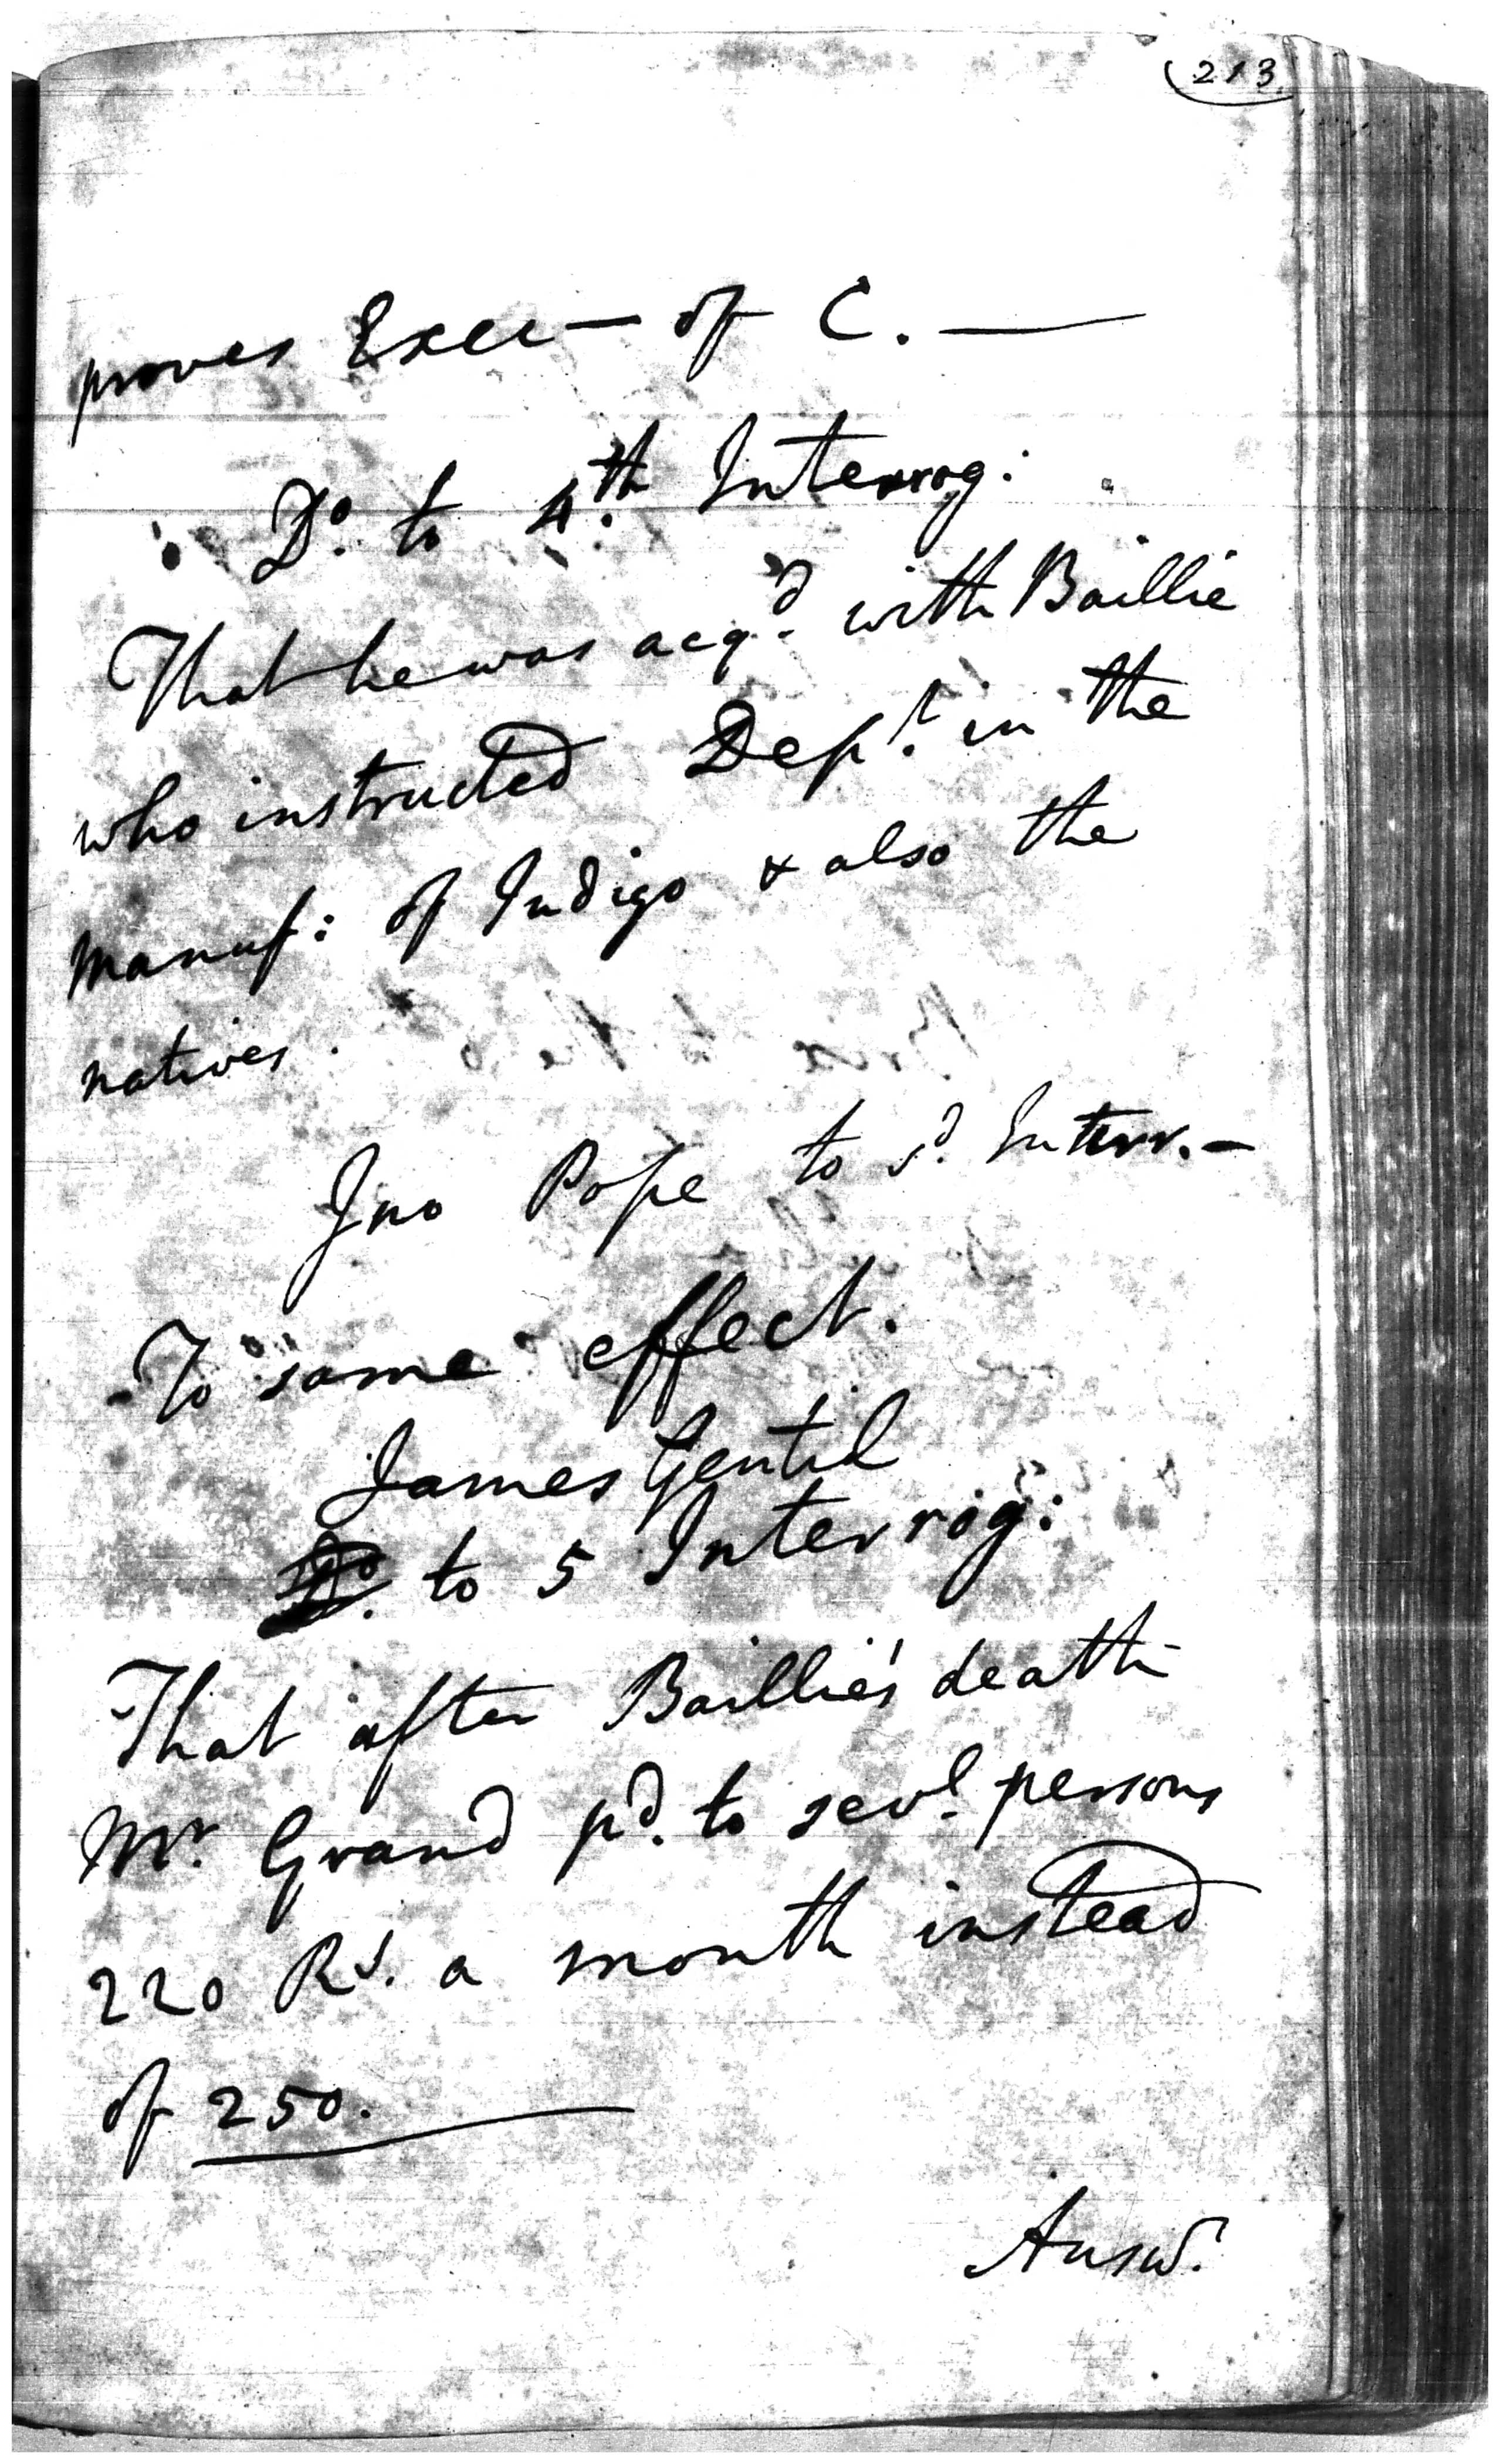 213
proves Exec— of C. —
Do. to 4.th Interrog:
That he was acqd. with Baillie
who instructed Dept. in the
Manuf: of Indigo & also the
natives.
Jno Pope to sd. Interr.—
To same effect.
James Gentil
to 5 Interrog:
That after Baillie's death
Mr. Grand pd. to sevl. persons
220 Rs. a month instead
of 250.
Answr.